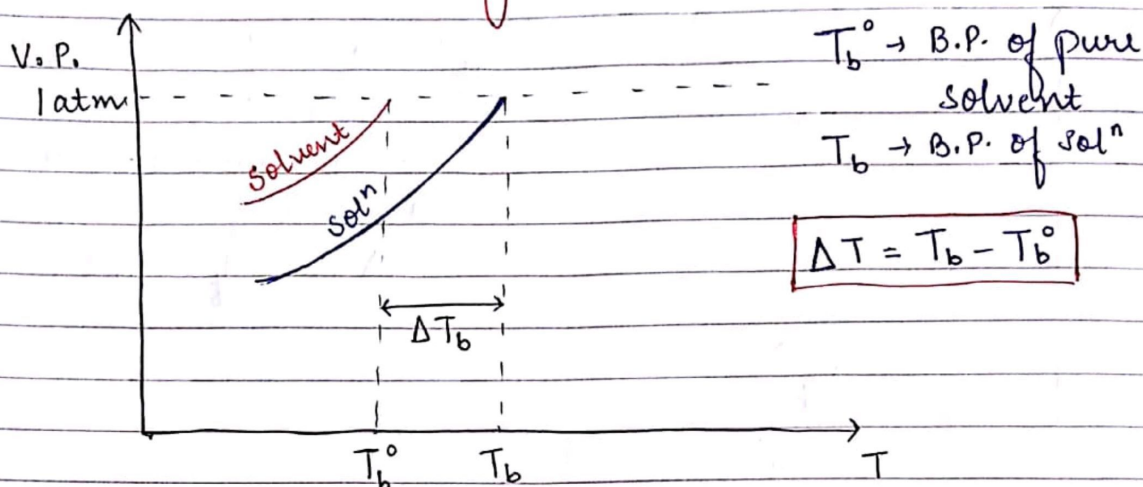 V.P.
1 atm
Solvent
Solⁿ
ΔT_b
T_b°
T_b
T
T_b° → B.P. of pure
solvent
T_b → B.P. of solⁿ
ΔT = T_b − T_b°